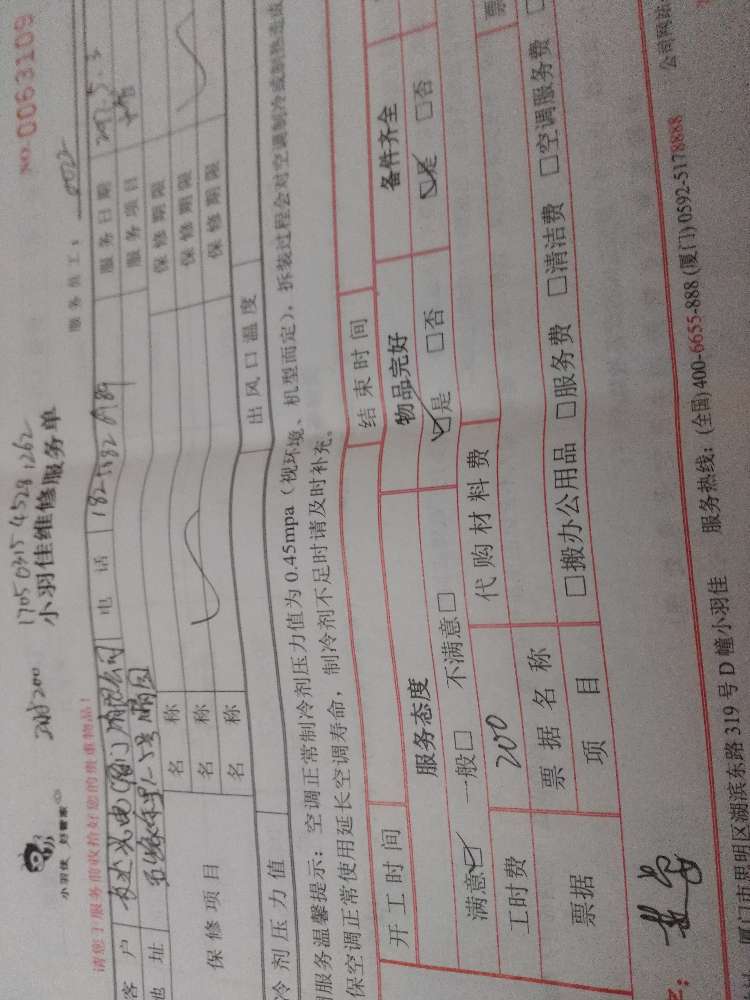 NO.0063109
200
1705 0315 4528 1262
小羽佳 好管家
小羽佳维修服务单
请您于服务前收拾好您的贵重物品!
服务员工:
客户 有限公司 电话 服务日期
地址 服务项目
保修项目 名称 保修期限
名称 保修期限
名称 保修期限
冷剂压力值 出风口温度
服务温馨提示:空调正常制冷剂压力值为0.45mpa(视环境、机型而定),拆装过程会对空调制冷或制热造成
保空调正常使用延长空调寿命,制冷剂不足时请及时补充。
开工时间 结束时间
服务态度 物品完好 备件齐全
满意☑ 一般□ 不满意□ ☑是 □否 ☑是 □否
工时费 200 代购材料费 票
票据 票据名称
项目 □搬办公用品 □服务费 □清洁费 □空调服务费 □
厦门市思明区湖滨东路319号D幢小羽佳 服务热线:(全国)400-6655-888 (厦门)0592-5178888 公司网站